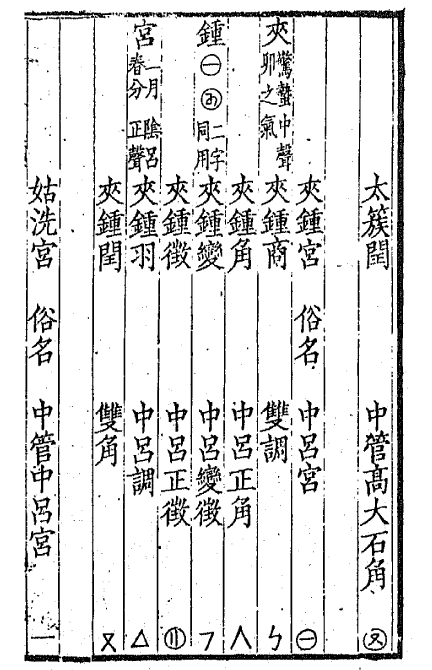 太簇閏 中管高大石角
夾鍾宮 俗名 中呂宮 ㊀
夾 驚蟄中聲 卯之氣 夾鍾商 雙調 ㄣ
夾鍾角 中呂正角 人
鍾 ㊀ 二字同用 夾鍾變 中呂變徵 ㄱ
夾鍾徵 中呂正徵
宮 二月陰呂 春分正聲 夾鍾羽 中呂調 △
夾鍾閏 雙角 ㄡ
姑洗宮 俗名 中管中呂宮 一